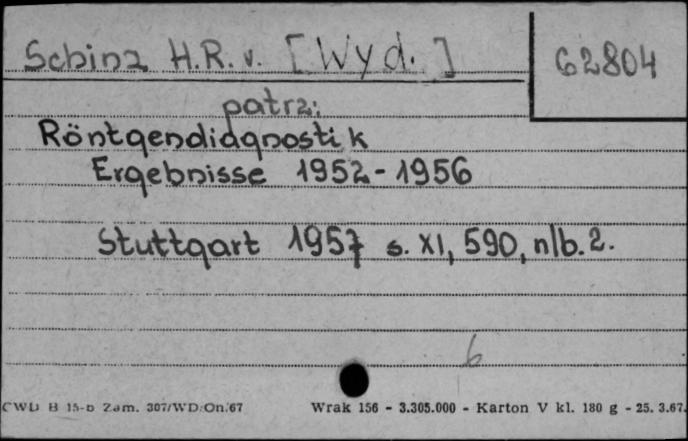 Schinz H.R. v. [Wyd.] 62804
patrz:
Röntgendiagnostik
Ergebnisse 1952-1956
Stuttgart 1957 s. XI, 590, nlb. 2.
6
CWD B 15-b Zam. 307/WD/On/67 Wrak 156 - 3.305.000 - Karton V kl. 180 g - 25. 3.67.